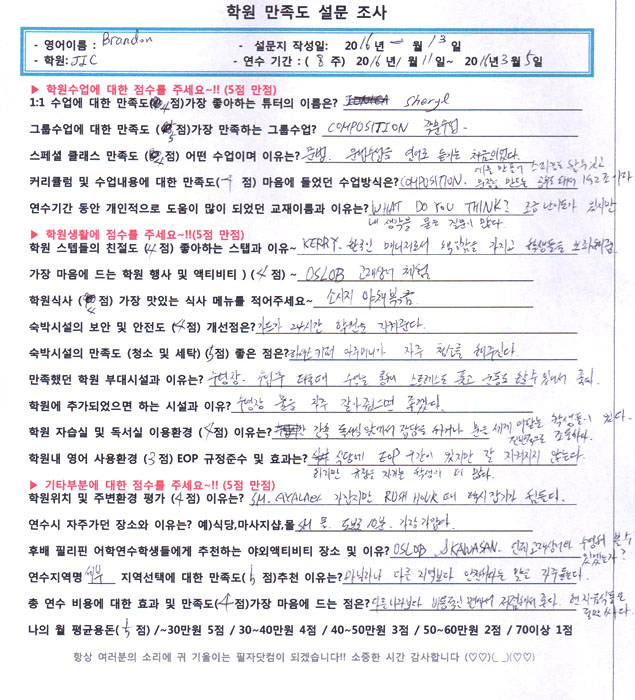 학원 만족도 설문 조사
- 영어이름 : Brandon - 설문지 작성일: 2016년 1월 13일
- 학원: JIC - 연수 기간 : ( 8 주) 2016년 1월 11일~ 2016년 3월 5일
▶ 학원수업에 대한 점수를 주세요~!! (5점 만점)
1:1 수업에 대한 만족도(4점)가장 좋아하는 튜터의 이름은? Sheryl
그룹수업에 대한 만족도 (5점)가장 만족하는 그룹수업? COMPOSITION 작문수업.
스페셜 클래스 만족도 (점) 어떤 수업이며 이유는? 문법. 문법수업을 영어로 듣기는 처음이었다.
커리큘럼 및 수업내용에 대한 만족도( 점) 마음에 들었던 수업방식은? COMPOSITION.
연수기간 동안 개인적으로 도움이 많이 되었던 교재이름과 이유는? WHAT DO YOU THINK? 조금 난이도가 있지만
내 생각을 묻는 질문이 많다
▶ 학원생활에 점수를 주세요~!!(5점 만점)
학원 스텝들의 친절도 (4점) 좋아하는 스탭과 이유~ KERRY. 한국인 매니저로서 책임감을 가지고 학생들을
가장 마음에 드는 학원 행사 및 액티비티 ) (4점) ~ OSLOB 고래상어 체험
학원식사 (4점) 가장 맛있는 식사 메뉴를 적어주세요~ 소시지 야채볶음
숙박시설의 보안 및 안전도 (4점) 개선점은? 가드가 24시간 학원을 지켜준다.
숙박시설의 만족도 (청소 및 세탁) (5점) 좋은 점은? 하우스키퍼 아주머니가 자주 청소를 해주신다.
만족했던 학원 부대시설과 이유는? 수영장. 수영을 하며 스트레스도 풀고 운동도 할 수 있어서 좋다.
학원에 추가되었으면 하는 시설과 이유? 수영장 물을 자주 갈아줬으면 좋겠다.
학원 자습실 및 독서실 이용환경 (4점) 이유는? 간혹 독서실 앞에서 잡담을 하거나
학원내 영어 사용환경 (3점) EOP 규정준수 및 효과는? 식당에 EOP 구간이 있지만 잘 지켜지지 않는다.
하지만 규정을 지키는 학생이 더 많다.
▶ 기타부분에 대한 점수를 주세요~!! (5점 만점)
학원위치 및 주변환경 평가 (4점) 이유는? SM. AYALA 가깝지만 RUSH HOUR 때 택시잡기가 힘들다.
연수시 자주가던 장소와 이유는? 예)식당,마사지샵,몰 SM 몰. 도보로 10분. 가장 가깝다.
후배 필리핀 어학연수학생들에게 추천하는 야외액티비티 장소 및 이유? OSLOB, KAWASAN. 언제 고래상어와 수영해 볼 수 있겠는가?
연수지역명 세부 지역선택에 대한 만족도(5점)추천 이유는? 마닐라나 다른 지역보다 안전하다는 말을 자주 듣는다.
총 연수 비용에 대한 효과 및 만족도(4점)가장 마음에 드는 점은? 다른 나라보다 비용적인 면에서 저렴해서 좋다.
나의 월 평균용돈( 점) /~30만원 5점 / 30~40만원 4점 / 40~50만원 3점 / 50~60만원 2점 / 70이상 1점
항상 여러분의 소리에 귀 기울이는 필자닷컴이 되겠습니다!! 소중한 시간 감사합니다 (♡♡)(_ _)(♡♡)